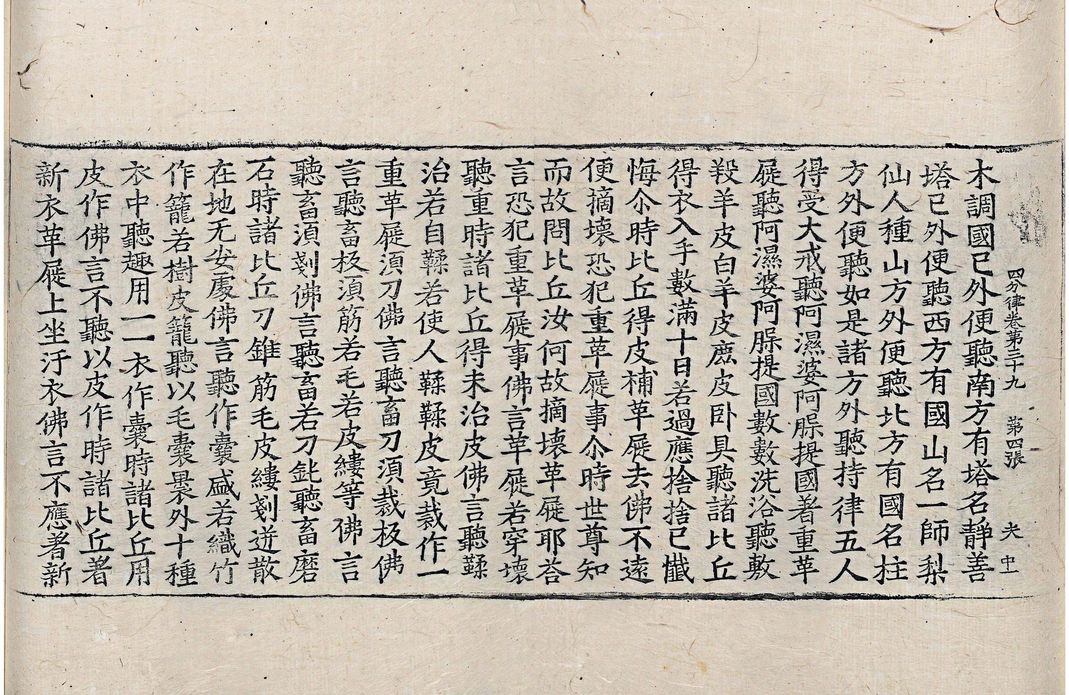 四分律卷第三十九 第四張 夫 中
木調國已外便聽南方有塔名靜善
塔已外便聽西方有國山名一師梨
仙人種山方外便聽北方有國名柱
方外便聽如是諸方外聽持律五人
得受大戒聽阿濕婆阿𦙶提國著重革
屣聽阿濕婆阿𦙶提國數數洗浴聽敷
羖羊皮白羊皮麃皮卧具聽諸比丘
得衣入手數滿十日若過應捨捨已懺
悔尒時比丘得皮補革屣去佛不遠
便摘壞恐犯重革屣事尒時世尊知
而故問比丘汝何故摘壞革屣耶荅
言恐犯重革屣事佛言革屣若穿壞
聽重時諸比丘得未治皮佛言聽鞣
治若自鞣若使人鞣鞣皮竟裁作一
重革屣須刀佛言聽畜刀須裁极佛
言聽畜极須筋若毛若皮縷等佛言
聽畜須剗佛言聽畜若刀鈋聽畜磨
石時諸比丘刀錐筋毛皮縷剗迸散
在地无安處佛言聽作囊盛若織竹
作籠若樹皮籠聽以毛囊褁外十種
衣中聽趣用一一衣作囊時諸比丘用
皮作佛言不聽以皮作時諸比丘著
新衣革屣上坐汙衣佛言不應著新